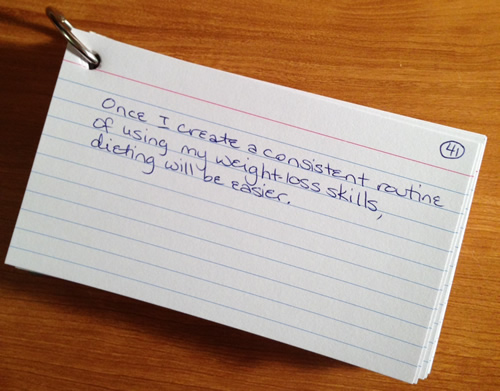 41
Once I create a consistent routine
of using my weight-loss skills,
dieting will be easier.